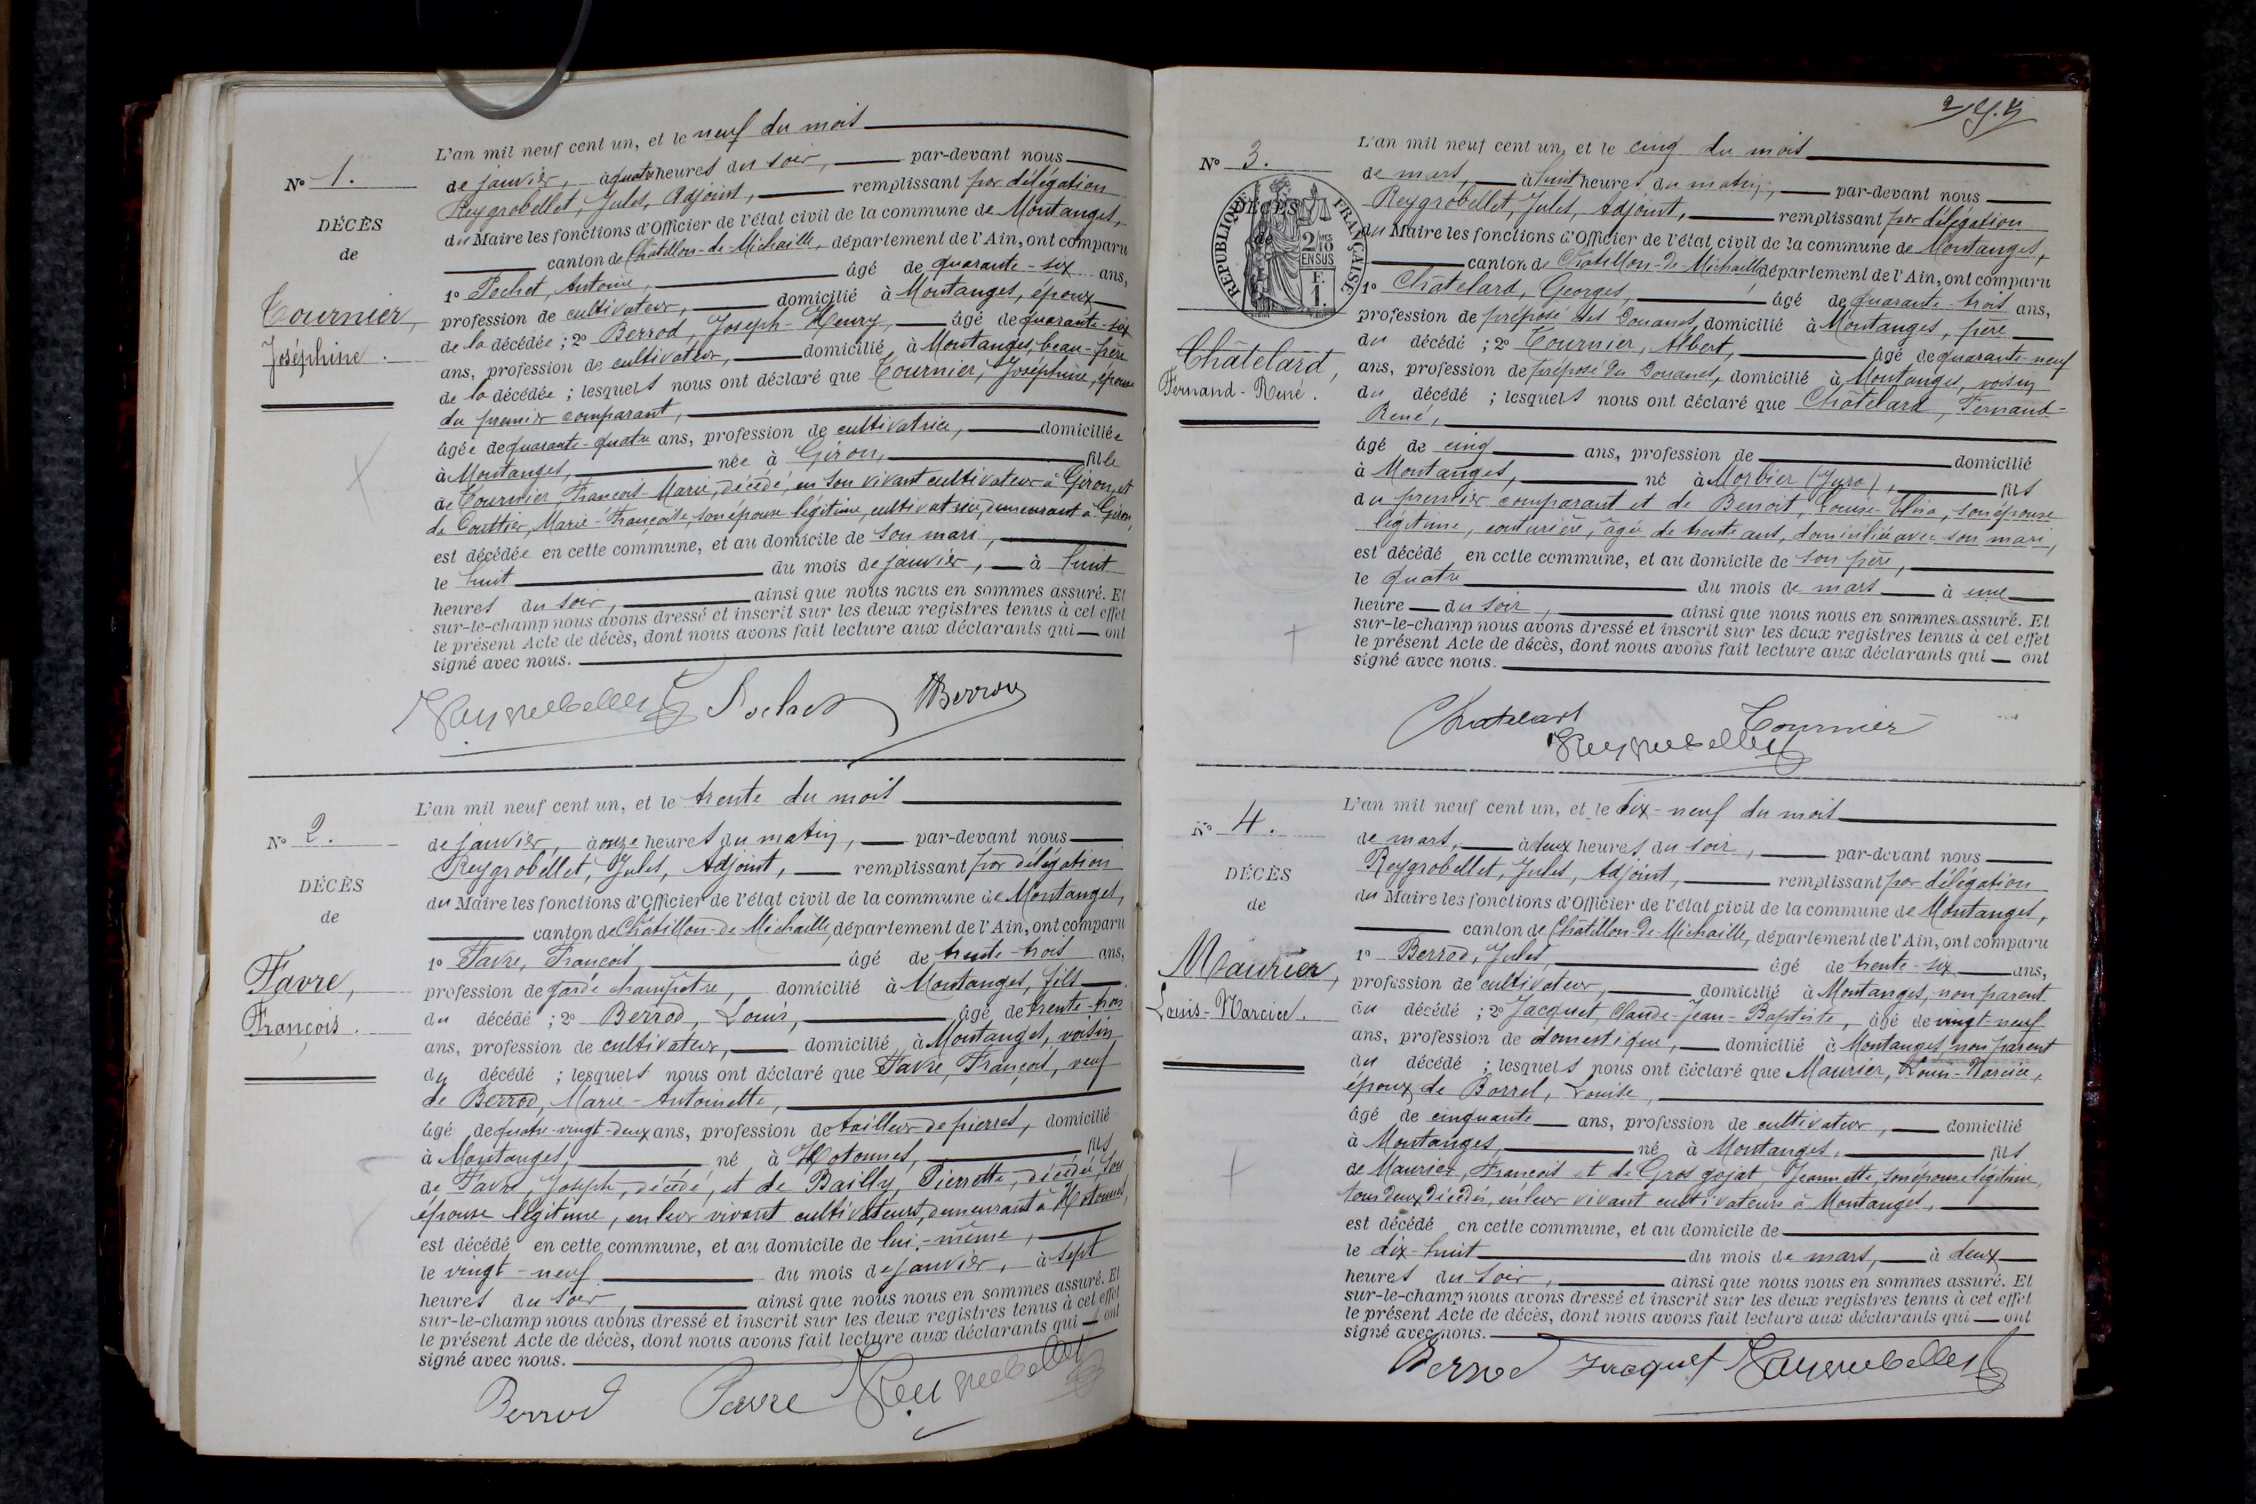 N° 1.
DÉCÈS
de
Tournier,
Joséphine.
L'an mil neuf cent un, et le neuf du mois
de janvier, à quatre heures du soir, par-devant nous
Reygrobellet, Jules, Adjoint, remplissant par délégation
du Maire les fonctions d'Officier de l'état civil de la commune de Montanges,
canton de Châtillon-de-Michaille, département de l'Ain, ont comparu
1° Pochet, Antoine, âgé de quarante-six ans,
profession de cultivateur, domicilié à Montanges, époux
de la décédée ; 2° Berrod, Joseph-Henry, âgé de quarante-six
ans, profession de cultivateur, domicilié à Montanges, beau-frère
de la décédée ; lesquels nous ont déclaré que Tournier, Joséphine, épouse
du premier comparant,
âgée de quarante-quatre ans, profession de cultivatrice, domiciliée
à Montanges, née à Giron, fille
de Tournier, François-Marie, décédé, en son vivant cultivateur à Giron, et
de Couttier, Marie-Françoise, son épouse légitime, cultivatrice, demeurant à Giron,
est décédée en cette commune, et au domicile de son mari,
le huit du mois de janvier, à huit
heures du soir, ainsi que nous nous en sommes assuré. Et
sur-le-champ nous avons dressé et inscrit sur les deux registres tenus à cet effet
le présent Acte de décès, dont nous avons fait lecture aux déclarants qui ont
signé avec nous.
Reygrobellet Pochet Berrod
N° 2.
DÉCÈS
de
Favre,
François.
L'an mil neuf cent un, et le trente du mois
de janvier, à onze heures du matin, par-devant nous
Reygrobellet, Jules, Adjoint, remplissant par délégation
du Maire les fonctions d'Officier de l'état civil de la commune de Montanges,
canton de Châtillon-de-Michaille, département de l'Ain, ont comparu
1° Favre, François, âgé de trente-trois ans,
profession de garde champêtre, domicilié à Montanges, fils
du décédé ; 2° Berrod, Louis, âgé de trente-trois
ans, profession de cultivateur, domicilié à Montanges, voisin
du décédé ; lesquels nous ont déclaré que Favre, François, veuf
de Berrod, Marie-Antoinette,
âgé de quatre-vingt-deux ans, profession de tailleur de pierres, domicilié
à Montanges, né à Hotonnes, fils
de Favre, Joseph, décédé, et de Bailly, Pierrette, décédée, son
épouse légitime, en leur vivant cultivateurs, demeurant à Hotonnes,
est décédé en cette commune, et au domicile de lui-même,
le vingt-neuf du mois de janvier, à sept
heures du soir, ainsi que nous nous en sommes assuré. Et
sur-le-champ nous avons dressé et inscrit sur les deux registres tenus à cet effet
le présent Acte de décès, dont nous avons fait lecture aux déclarants qui ont
signé avec nous.
Berrod Favre Reygrobellet
N° 3.
RÉPUBLIQUE FRANÇAISE
2/10 EN SUS
DÉCÈS
de
Châtelard,
Fernand-René.
L'an mil neuf cent un, et le cinq du mois
de mars, à huit heures du matin, par-devant nous
Reygrobellet, Jules, Adjoint, remplissant par délégation
du Maire les fonctions d'Officier de l'état civil de la commune de Montanges,
canton de Châtillon-de-Michaille, département de l'Ain, ont comparu
1° Châtelard, Georges, âgé de quarante-trois ans,
profession de préposé des Douanes, domicilié à Montanges, père
du décédé ; 2° Tournier, Albert, âgé de quarante-neuf
ans, profession de préposé des Douanes, domicilié à Montanges, voisin
du décédé ; lesquels nous ont déclaré que Châtelard, Fernand-
René,
âgé de cinq ans, profession de domicilié
à Montanges, né à Morbier (Jura), fils
du premier comparant et de Benoit, Louise-Elisa, son épouse
légitime, couturière, âgée de trente ans, domiciliée avec son mari,
est décédé en cette commune, et au domicile de son père,
le quatre du mois de mars à une
heure du soir, ainsi que nous nous en sommes assuré. Et
sur-le-champ nous avons dressé et inscrit sur les deux registres tenus à cet effet
le présent Acte de décès, dont nous avons fait lecture aux déclarants qui ont
signé avec nous.
Chatelard Tournier
Reygrobellet
N° 4.
DÉCÈS
de
Maurier,
Louis-Narcice.
L'an mil neuf cent un, et le dix-neuf du mois
de mars, à deux heures du soir, par-devant nous
Reygrobellet, Jules, Adjoint, remplissant par délégation
du Maire les fonctions d'Officier de l'état civil de la commune de Montanges,
canton de Châtillon-de-Michaille, département de l'Ain, ont comparu
1° Berrod, Jules, âgé de trente-six ans,
profession de cultivateur, domicilié à Montanges, non parent
du décédé ; 2° Jacquet, Claude-Jean-Baptiste, âgé de vingt-neuf
ans, profession de domestique, domicilié à Montanges, non parent
du décédé ; lesquels nous ont déclaré que Maurier, Louis-Narcice,
époux de Borrel, Louise,
âgé de cinquante ans, profession de cultivateur, domicilié
à Montanges, né à Montanges, fils
de Maurier, François et de Gros gojat, Jeannette, son épouse légitime,
tous deux décédés, en leur vivant cultivateurs à Montanges,
est décédé en cette commune, et au domicile de
le dix-huit du mois de mars, à deux
heures du soir, ainsi que nous nous en sommes assuré. Et
sur-le-champ nous avons dressé et inscrit sur les deux registres tenus à cet effet
le présent Acte de décès, dont nous avons fait lecture aux déclarants qui ont
signé avec nous.
Berrod Jacquet Reygrobellet